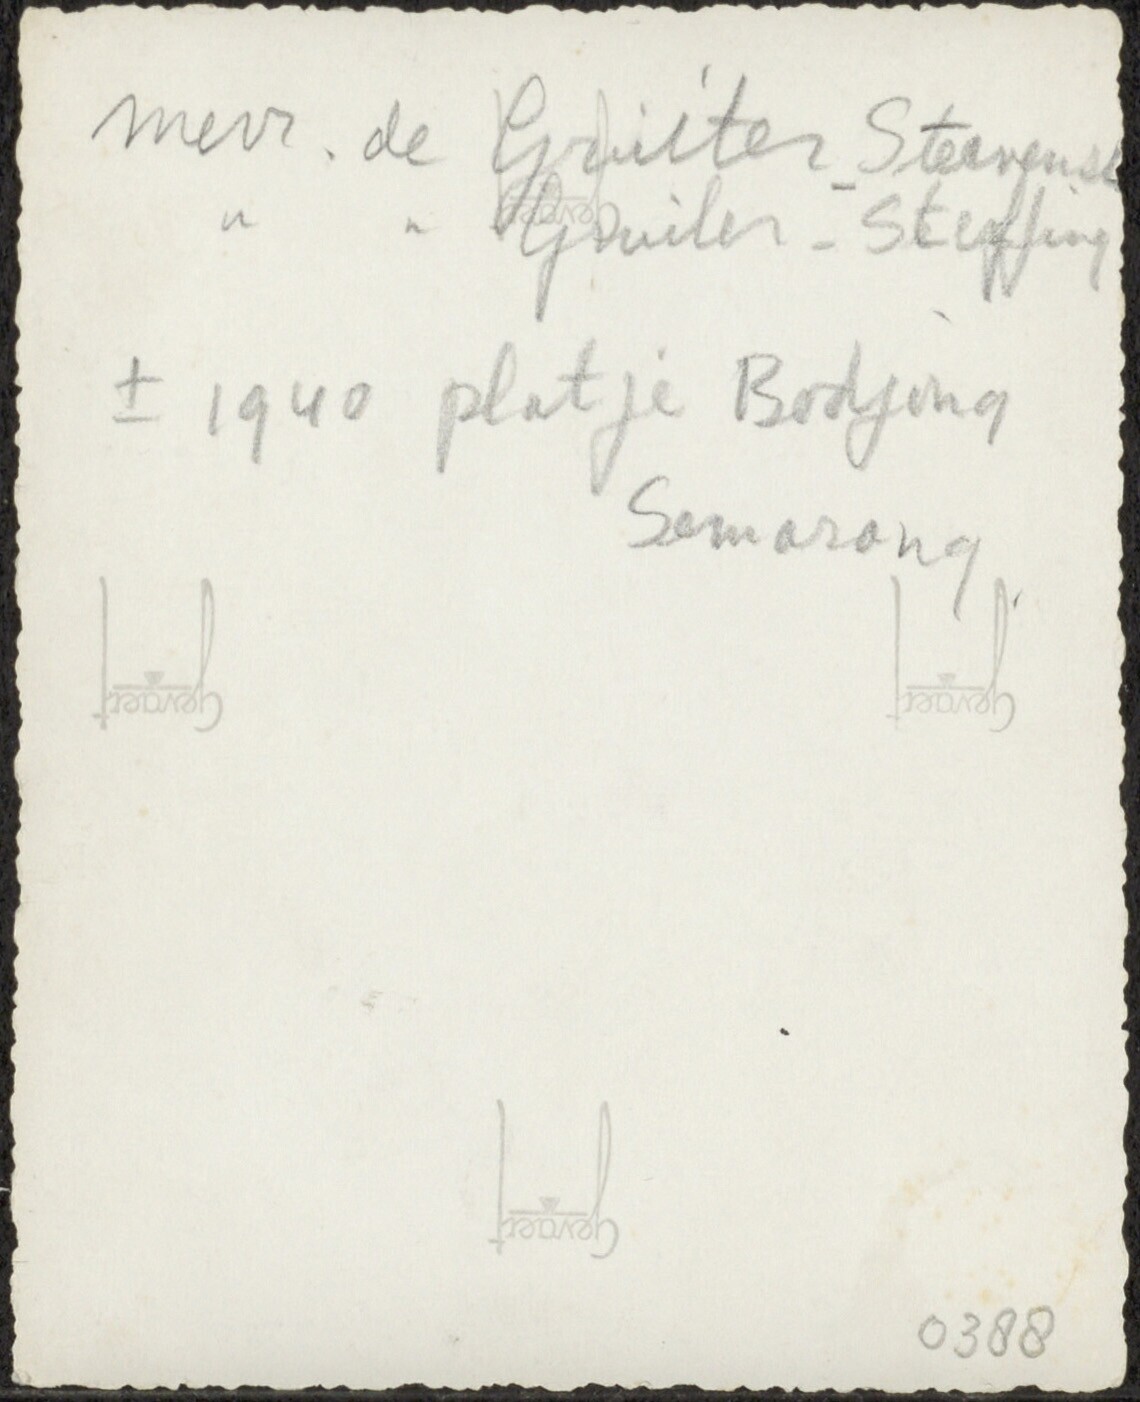 mevr. de Gruiter - Stevense
" " Gruiter - Steffing
± 1940 platje Bodjong
Semarang
Gevaert
Gevaert
Gevaert
Gevaert
0388